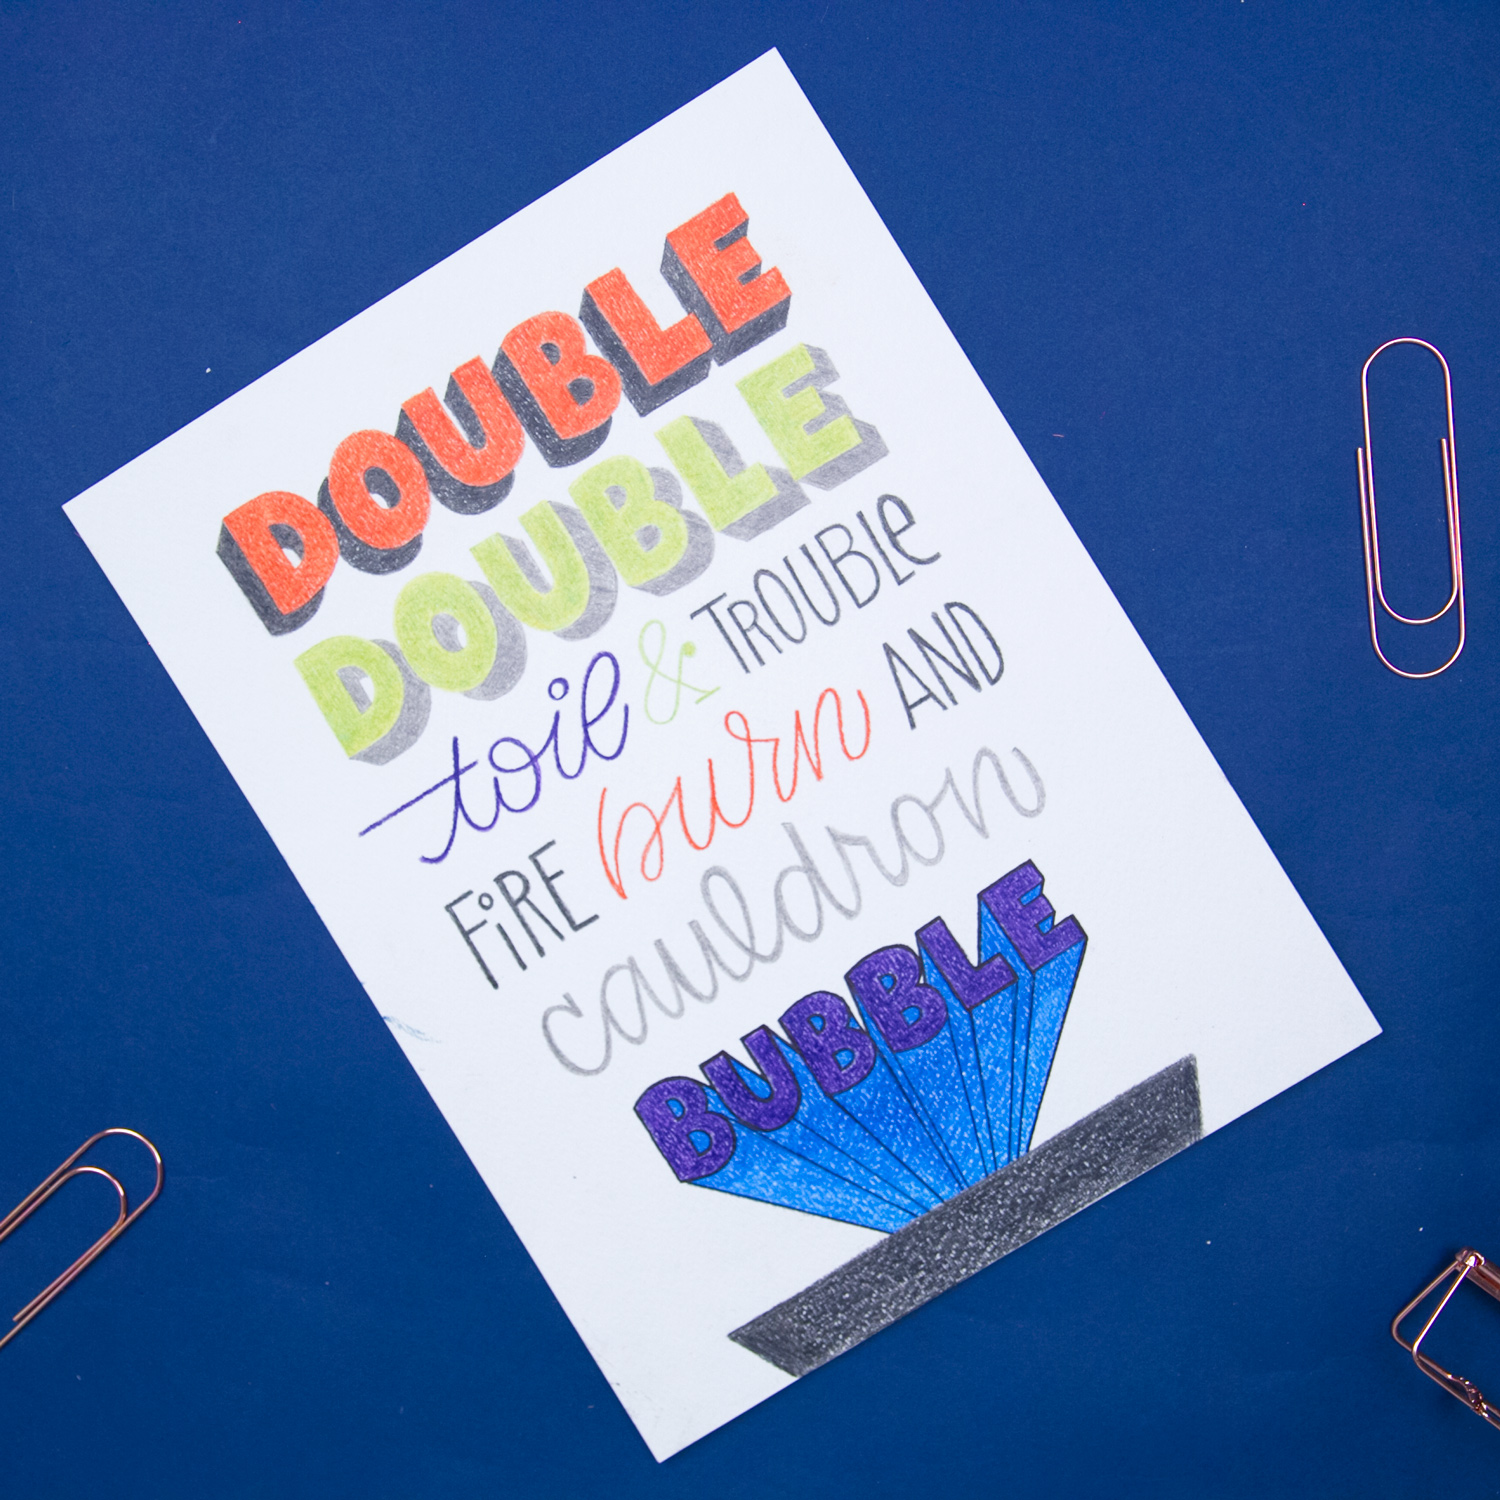 DOUBLE
DOUBLE
toil & TROUBLe
FiRE burn AND
cauldron
BUBBLE